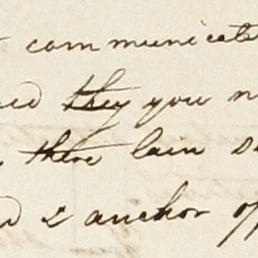 communicate
they you
there lain
& anchor of